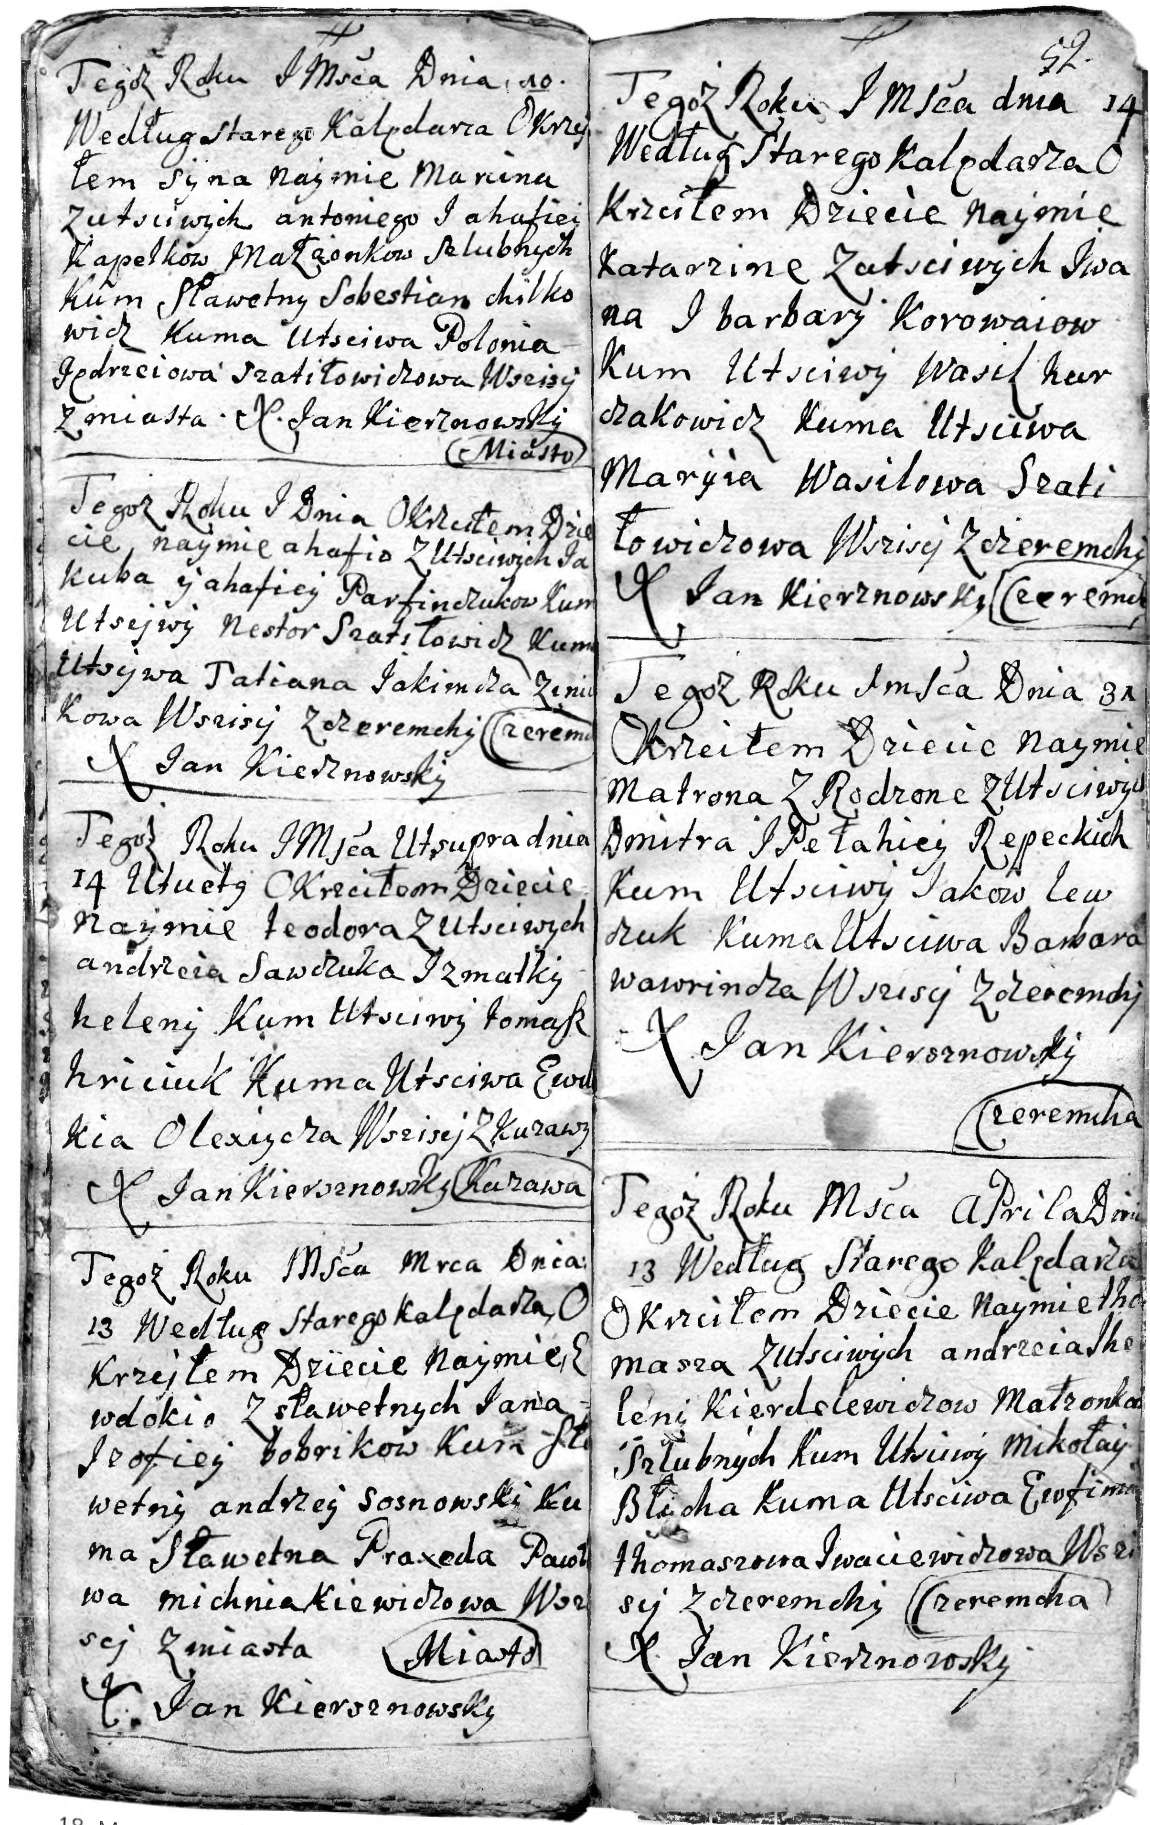 Tegoż Roku I Msca Dnia 10.
Według starego Kalędarza Okrzei
łem syna najmie Marcina
zutsciwych antoniego I ahafiei
Kapelków Małżonkow szlubnych
Kum Sławetny Sobestian chilko
wicz Kuma Utsciwa Polonia
Jędrzeiowa Szatiłowiczowa Wszisy
z miasta. X. Jan Kiersznowsky
Miasto
Tegoż Roku I Dnia Okrzciłem Dzie
cie najmie ahafio Z Utsciwych Ja
kuba y ahafiej Parfinczukow Kum
Utscjwy Nestor Szatiłowicz Kuma
Utscywa Tatiana Jakimcza
Kowa Wszisij z czeremchy Czerem
X Jan Kiersznowsky
Tegoż Roku I Msca Utsupra dnia
14 Okrzciłem Dziecie
Najmie teodora Z Utsciwych
andrzeia Sawczuka I z matky
heleny Kum Utsciwy tomasz
hriciuk Kuma Utsciwa Ewd
kia Olexiycza Wszisij Z Kuzawy
X Jan Kiersznowsky Kuzawa
Tegoż Roku Msca Mrca Dnia
13 Według starego kalędarza O
krzejłem Dziecie Najmie E
wdokio Z sławetnych Jana
I zofiej bobrikow Kum Sła
wetny andrzej sosnowsky Ku
ma Sławetna Praxeda Pawło
wa michniakiewiczowa Wszi
scj z miasta Miasto
X. Jan Kiersznowsky
52.
Tegoż Roku I Msca dnia 14
Według Starego Kalędarza O
Krzciłem Dziecie najmie
Katarzine Zutsciwych Iwa
na I barbary Korowaiow
Kum Utsciwy Wasil har
czakowicz Kuma Utsciwa
Maryia Wasilowa Szati
łowiczowa Wszisij Z czeremchy
X Jan Kiersznowsky Czeremch
Tegoż Roku I msca Dnia 31
Okrzciłem Dziecie najmie
Matrona Z Rodzone z Utsciwych
Dmitra I Pełahiej Repeckich
Kum Utsciwy Jakow lew
czuk Kuma Utsciwa Barbara
wawrincza Wszisij z czeremchy
X Jan Kiersznowsky
Czeremcha
Tegoż Roku Msca aPrila Dnia
13 Według Starego Kalędarza
Okrzciłem Dziecie Najmie tho
masza Zutsciwych andrzeia I he
leny Kierdelewiczow Małzonkow
Szlubnych Kum Utsciwy Mikołay
Błicha Kuma Utsciwa Ewfimia
thomaszowa Iwaciewiczowa Wszi
sij z czeremchy Czeremcha
X. Jan Kiersznowsky